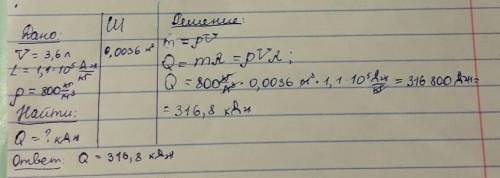 Дано:
V = 3,6 л
L = 1,1 · 10⁵ Дж/кг
ρ = 800 кг/м³
Найти:
Q = ? кДж
СИ
0,0036 м³
Решение:
m = ρV
Q = mλ = ρVλ ;
Q = 800 кг/м³ · 0,0036 м³ · 1,1 · 10⁵ Дж/кг = 316 800 Дж =
= 316,8 кДж
Ответ: Q = 316,8 кДж